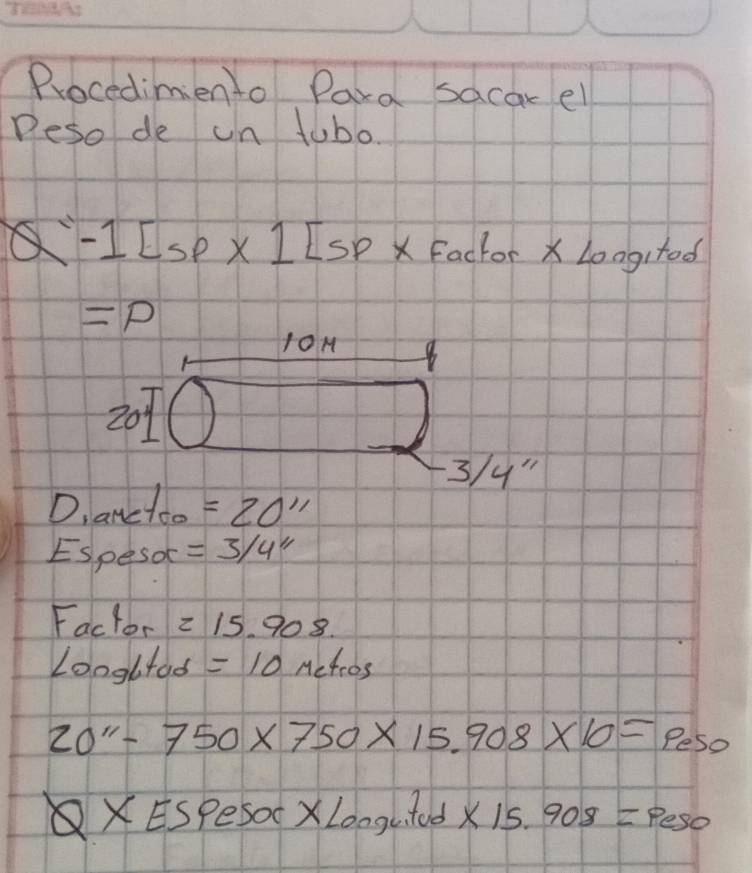 TEMA:
Procedimiento Para sacar el
Peso de un tubo.
Ø" - 1 Esp x 1 Esp x Factor x Longitod
= P
10M
20"
3/4"
Diametro = 20"
Espesor = 3/4"
Factor = 15.908.
Longitud = 10 Metros
20" - 750 x 750 x 15.908 x 10 = Peso
Ø x Espesor x Longuitud x 15.908 = Peso